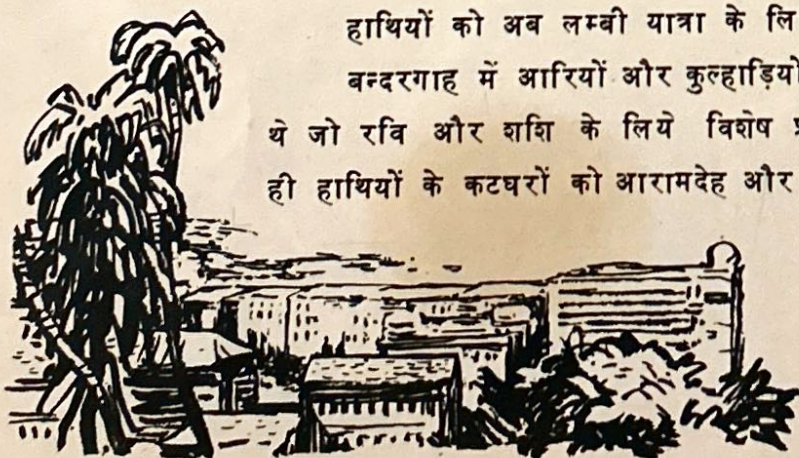 हाथियों को अब लम्बी यात्रा के लि
बन्दरगाह में आरियों और कुल्हाड़ियो
थे जो रवि और शशि के लिये विशेष प्र
ही हाथियों के कटघरों को आरामदेह और